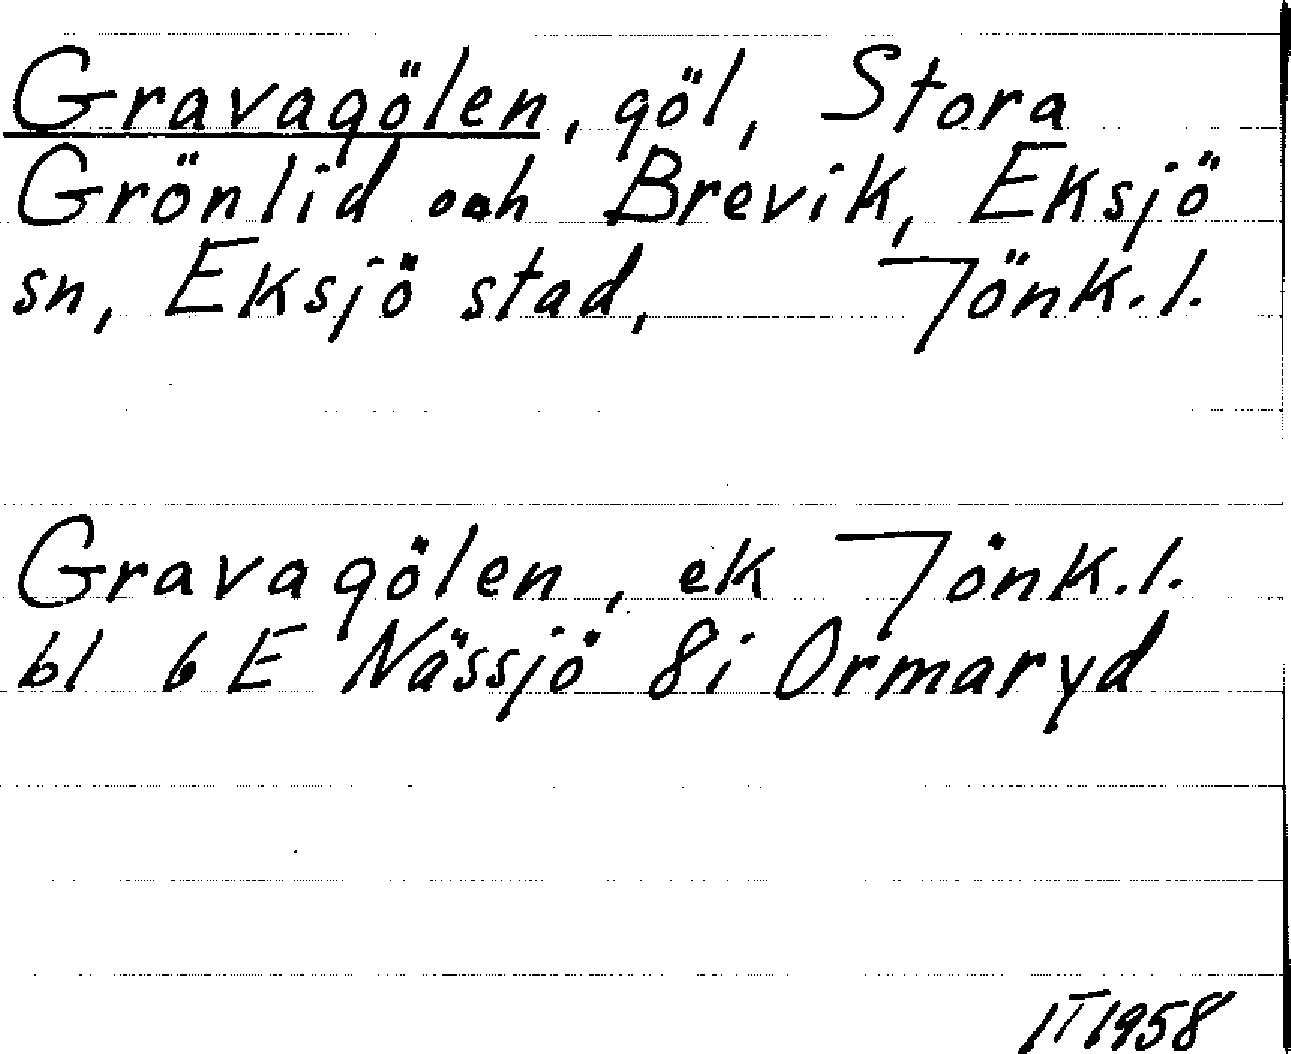 Gravagölen, göl, Stora
Grönlid och Brevik, Eksjö
sn, Eksjö stad, Jönk.l.
Gravagölen, ek Jönk.l.
bl 6 E Nässjö 8i Ormaryd
1958